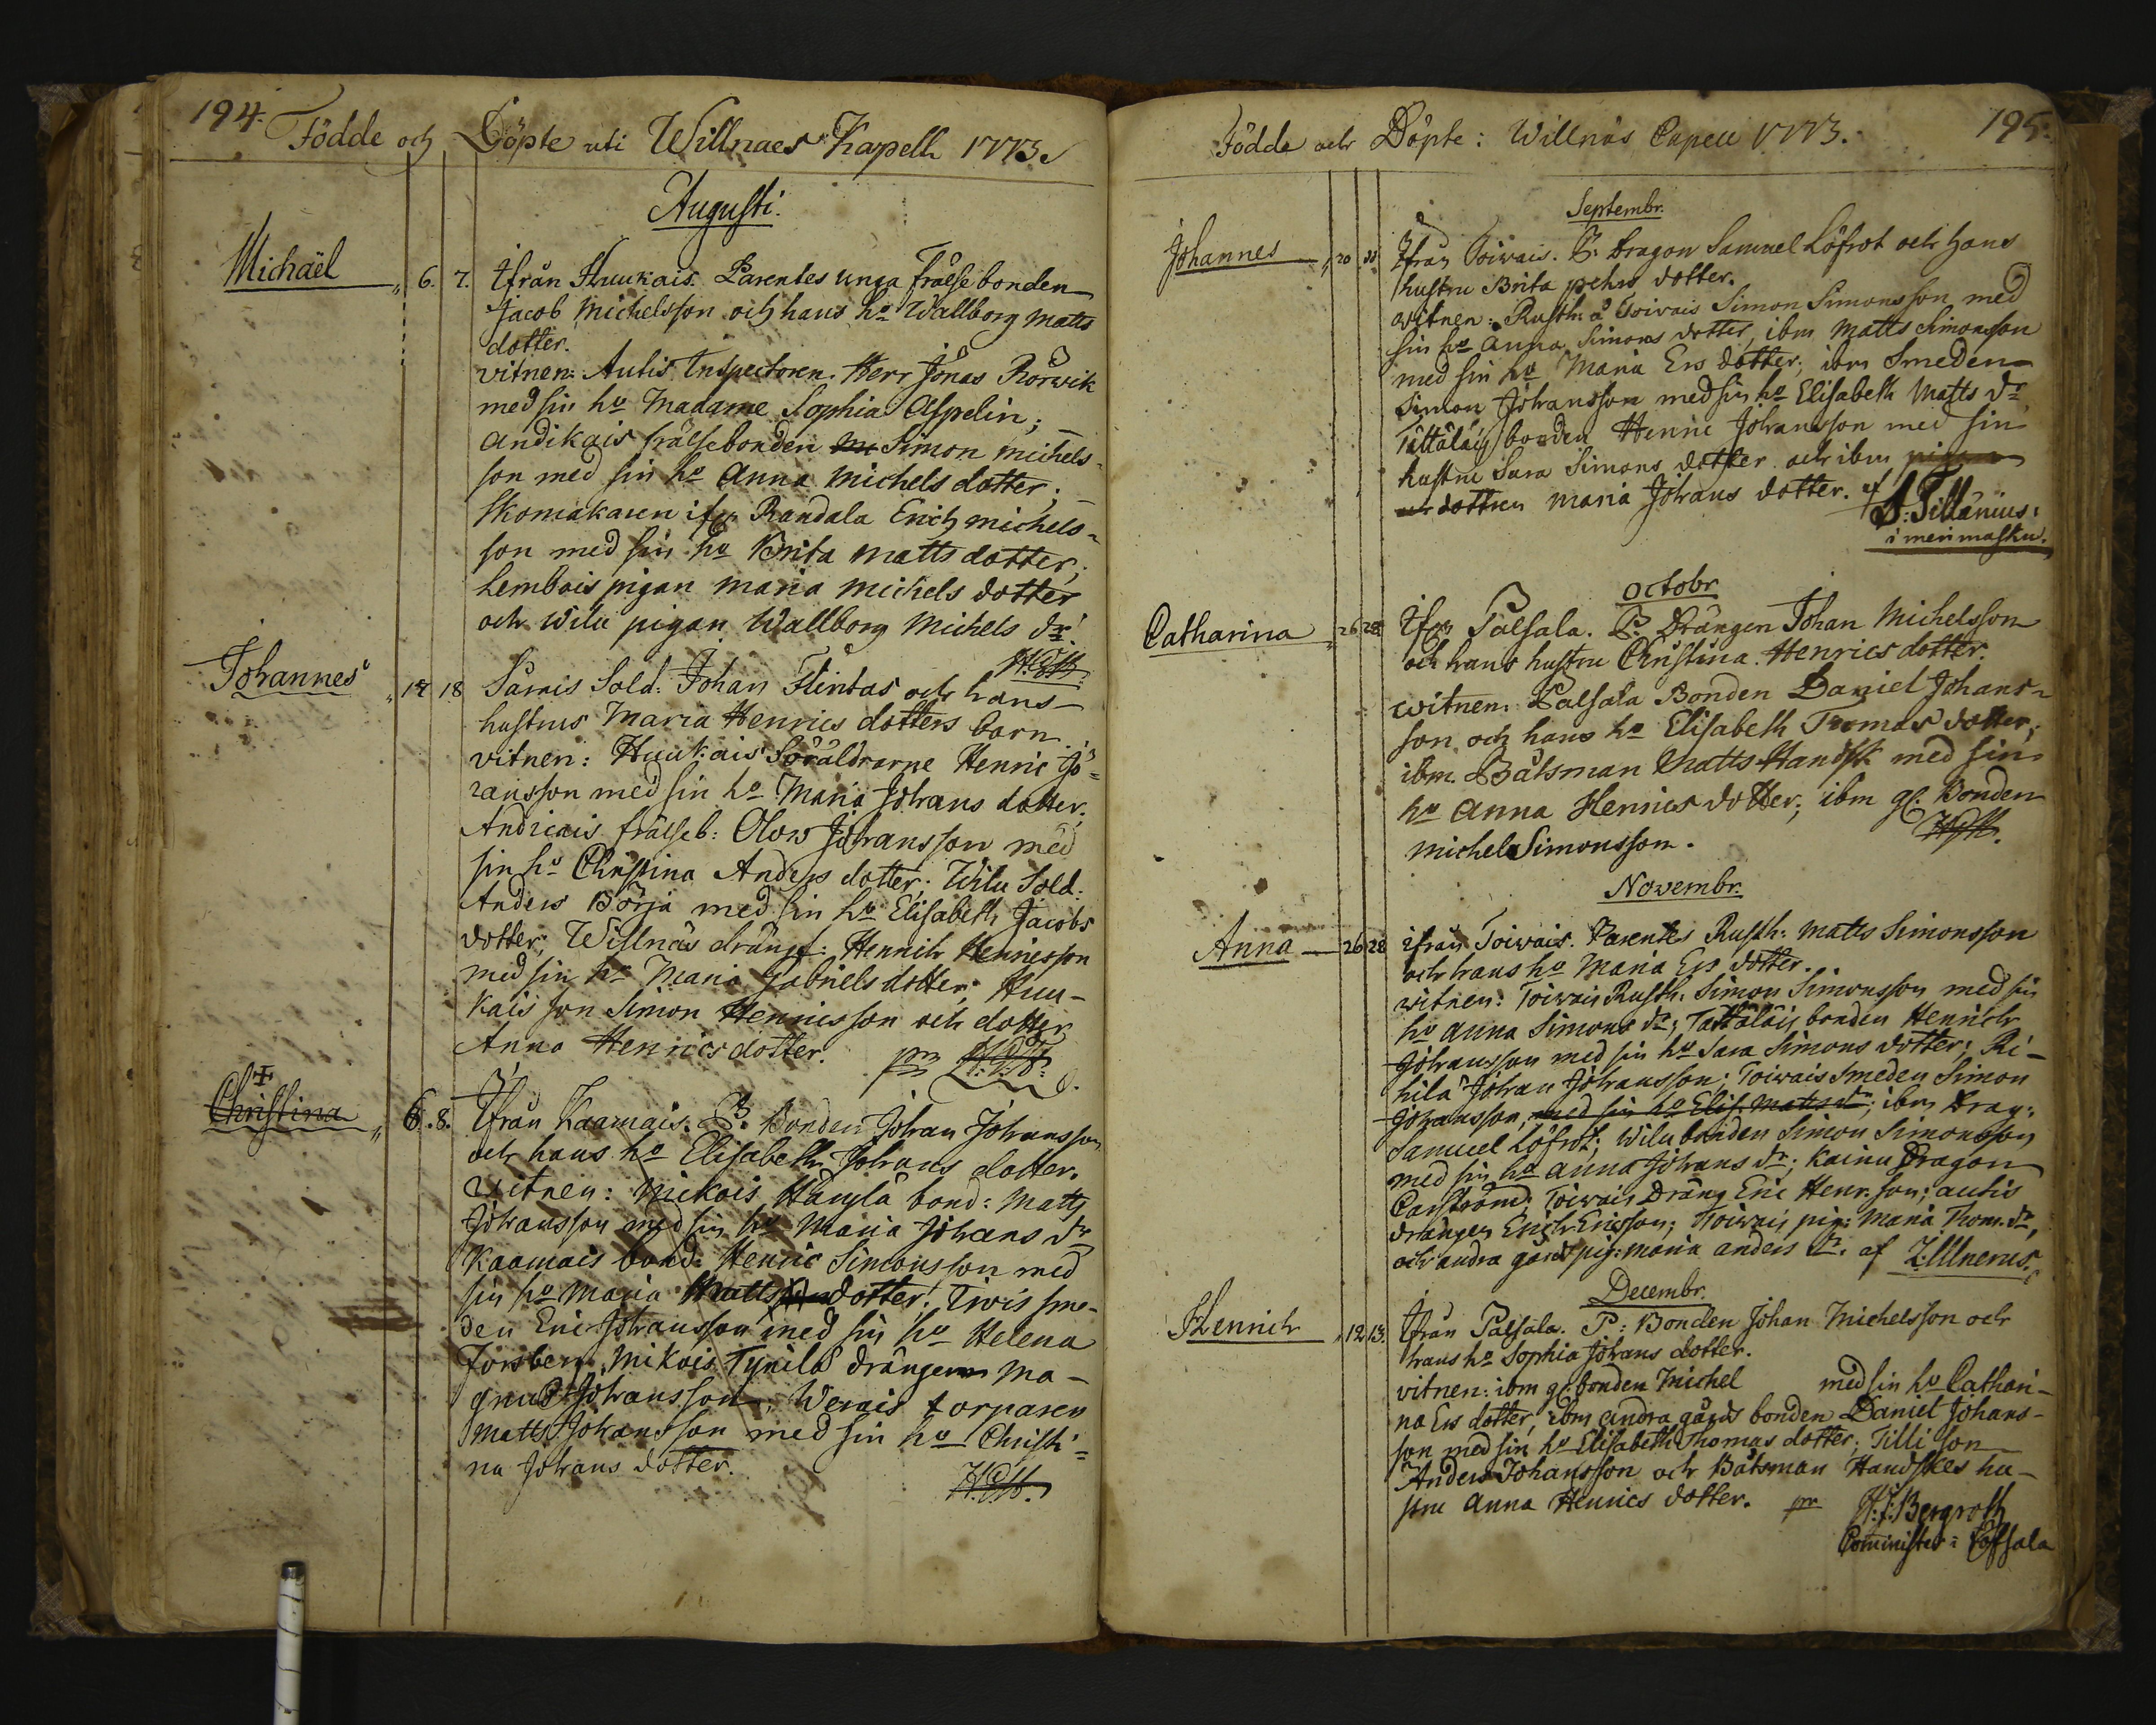 194.
Födde och Döpte uti Willnaes Kapell 1773.
Augusti.
Michaël " 6. 7. Ifrån Huukais. Parentes unga frälsebonden
Jacob Michelsson och hans ho Wallborg Matts
dotter.
vitnen: Autis Inspectoren Herr Jonas Rörwik
med sin ho Madame Sophia Aspelin;
Andikais frälsebonden Simon michels-
son med sin ho Anna Michels dotter;
Skomakaren ifrn Randala Erich michels-
son med sin ho Brita Matts dotter;
Lembois pigan Maria Michels dotter
och Wilu pigan Wallborg Michels dr.
Johannes " 17 18 Särnis Sold: Johan Flintas och hans
hustrus Maria Henrics dotters barn
vitnen: Huukais Föräldrarne Henric Jo-
hansson med sin ho Maria Johans dotter;
Andicais frälseb: Olow Johansson med
sin ho Christina Anders dotter; Wilu Sold:
Anders Börja med sin ho Elisabeth Jacobs
dotter; Willnäs drängf: Henrich Henricsson
med sin ho Maria Gabriels dotter; Huu-
kais son Simon Henricsson och dotter
Anna Henrics dotter. pm
Christina " 6. 8. Ifrån Kaamais. P. Bonden Johan Johansson
och hans ho Elisabeth Johans dotter.
vitnen: Mickois Hangla bond: Matts
Johansson med sin ho Maria Johans dr
Kaamais bond: Henric Simonsson med
sin ho Maria Matts dotter; Tivis sme-
den Eric Johansson med sin ho Helena
Forsberg, Mikois Tynilä drängen Ma-
gnus Johansson, Werais torparen
Matts Johansson med sin ho Christi-
na Johans dotter.
195.
Födde och Döpte: Willnäs Capell 1773.
Septembr.
Johannes " 20 Ifrån Toiwais. P. Dragon Samuel Löfrot och hans
hustru Brita pehrs dotter.
witnen: Rusth: å Toiwais Simon Simonsson med
sin ho Anna Simons dotter, ibm Matts Simonsson
med sin ho Maria Ers dotter; ibm Smeden
Simon Johansson med sin ho Elisabeth Matts dr
Tättäläis bonden Henric Johansson med sin
hustru Sara Simons dotter och ibm
dottren Maria Johans dotter. af S: Tillänius:
i Merimasku.
Octobr
Catharina " 26 28 Ifrn Palsala. P. Drängen Johan Michelsson
och hans hustru Christina Henrics dotter.
witnen: Palsala Bonden Daniel Johans-
son och hans ho Elisabeth Thomas dotter;
ibm. Båtsman Matts Handsk med sin
ho Anna Henrics dotter; ibm gl. Bonden
Michel Simonsson.
Novembr.
Anna 26 28 ifrån Toiwais. Parentes Rusth: Matts Simonsson
och hans ho Maria Ers dotter.
witnen: Toiwais Rusth. Simon Simonsson med sin
ho Anna Simons dr; Tättäläis bonden Henrich
Johansson med sin ho Sara Simons dotter; Ri-
hilä Johan Johansson; Toiwais Smeden Simon
Johansson, med sin ho Elis: Matts dr; ibm Drag:
Samuel Löfrot; Wilu bonden Simon Simonsson
med sin ho Anna Johans dr; Kainu Dragon
Carström; Toiwais Dräng Eric Henr. son; autis
drängen Erich Ericsson; Toiwais pig: Maria Thom. dr,
och andra gårds pig: Maria anders dr. af Z: Ulnerus.
Decembr.
Henrich " 12 13. Ifrån Palsala. P: Bonden Johan Michelsson och
hans ho Sophia Johans dotter.
vitnen: ibm gl. bonden Michel med sin ho Cathari-
na Ers dotter, ibm andra gårds bonden Daniel Johans-
son med sin ho Elisabeth Thomas dotter; Tilli son
Anders Johansson och Båtsman Handskes hu-
stru Anna Henrics dotter. pm H: J: Bergroth
Cominister i Töfsala